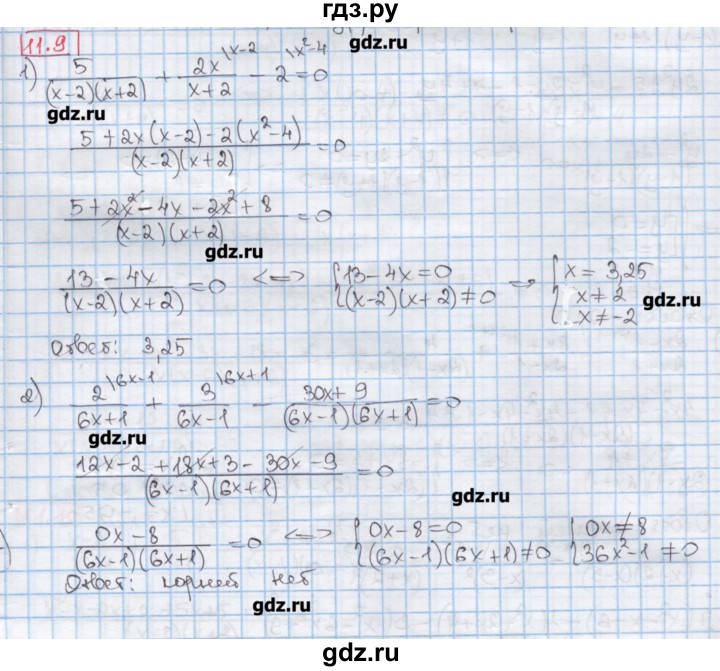 гдз.ру
11.9
gdz.ru
1) 5/((x-2)(x+2)) + 2x\x-2/(x+2) - 2\x²-4 = 0
gdz.ru
(5+2x(x-2)-2(x²-4))/((x-2)(x+2)) = 0
(5+2x²-4x-2x²+8)/((x-2)(x+2)) = 0
gdz.ru
(13-4x)/((x-2)(x+2)) = 0 <=> {13-4x=0 (x-2)(x+2)≠0 => {x=3,25 x≠2 x≠-2
gdz.ru
Ответ: 3,25
2) 2\6x-1/(6x+1) + 3\6x+1/(6x-1) - (30x+9)/((6x-1)(6x+1)) = 0
gdz.ru
(12x-2+18x+3-30x-9)/((6x-1)(6x+1)) = 0
gdz.ru
(0x-8)/((6x-1)(6x+1)) = 0 <=> {0x-8=0 (6x-1)(6x+1)≠0 {0x≠8 36x²-1≠0
Ответ: корней нет
gdz.ru
gdz.ru